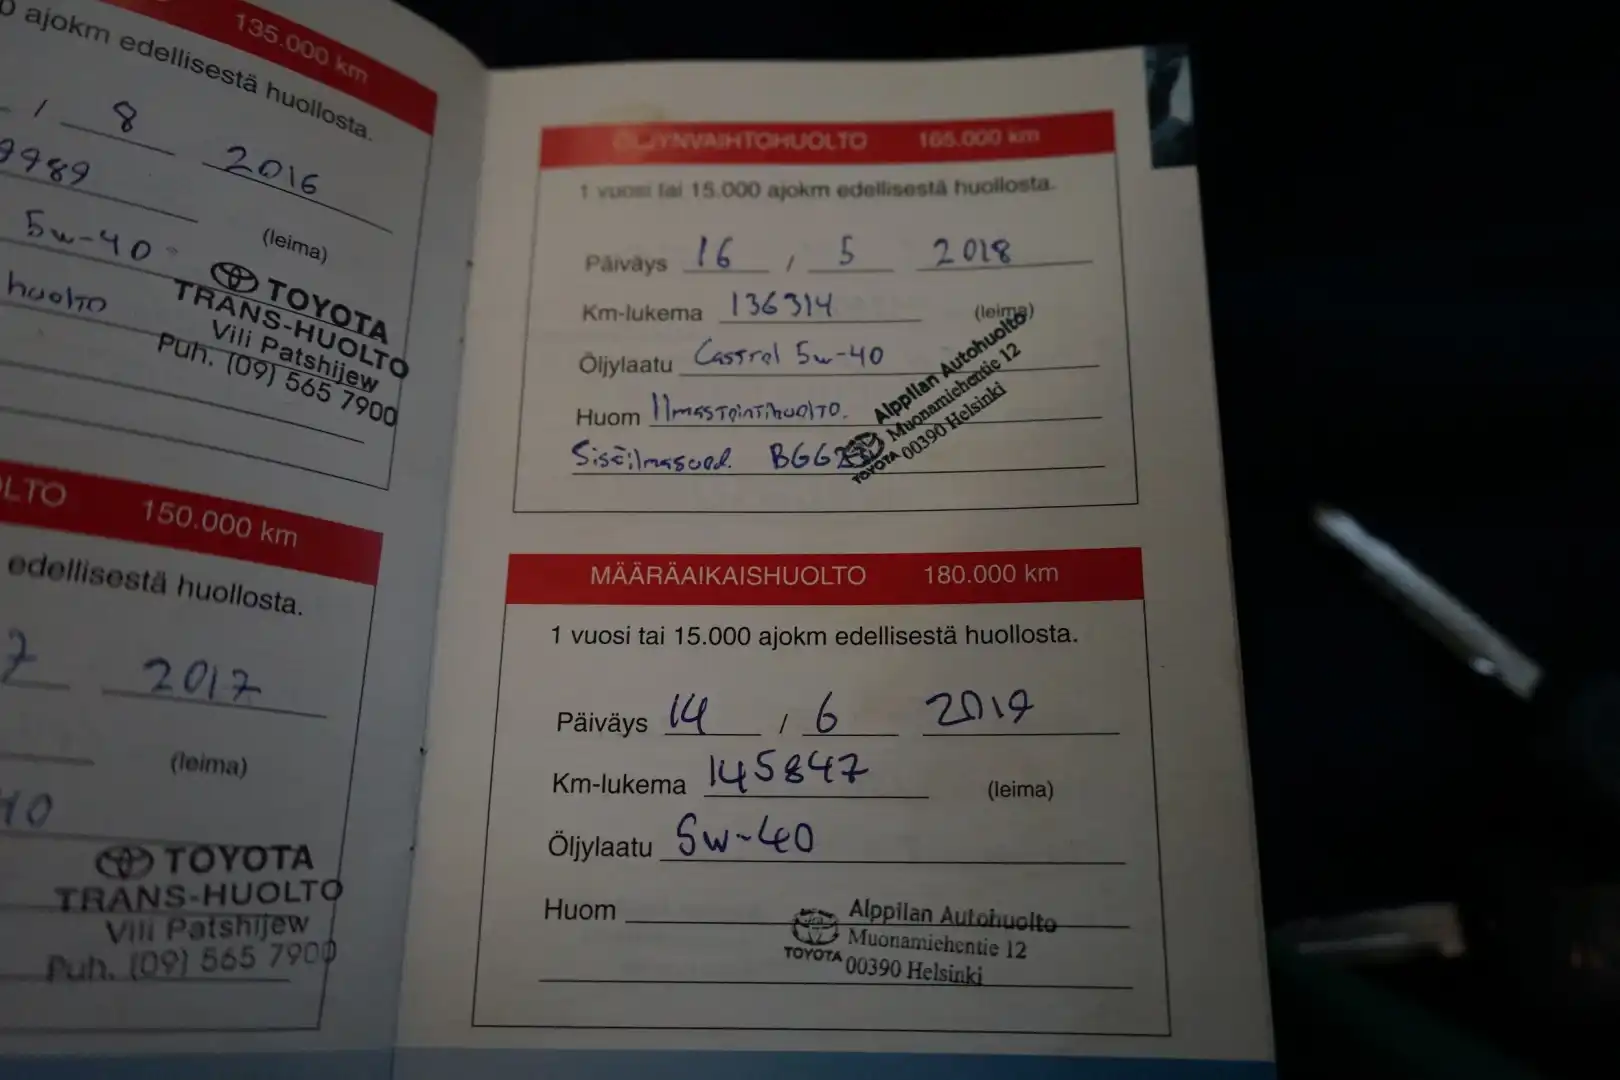 135.000 km
ajokm edellisestä huollosta.
/ 8 2016
9989
5w-40
(leima)
huolto
TOYOTA
TRANS-HUOLTO
Vili Patshijew
Puh. (09) 565 7900
LTO 150.000 km
edellisestä huollosta.
7 2017
(leima)
40
TOYOTA
TRANS-HUOLTO
Vili Patshijew
Puh. (09) 565 7900
ÖLJYNVAIHTOHUOLTO 165.000 km
1 vuosi tai 15.000 ajokm edellisestä huollosta.
Päiväys 16 / 5 2018
Km-lukema 136314 (leima)
Öljylaatu Castrol 5w-40
Huom Ilmastointihuolto.
Sisäilmasuod.
Alppilan Autohuolto
Muonamiehentie 12
TOYOTA 00390 Helsinki
MÄÄRÄAIKAISHUOLTO 180.000 km
1 vuosi tai 15.000 ajokm edellisestä huollosta.
Päiväys 14 / 6 2019
Km-lukema 145847 (leima)
Öljylaatu 5w-40
Huom
Alppilan Autohuolto
Muonamiehentie 12
TOYOTA 00390 Helsinki